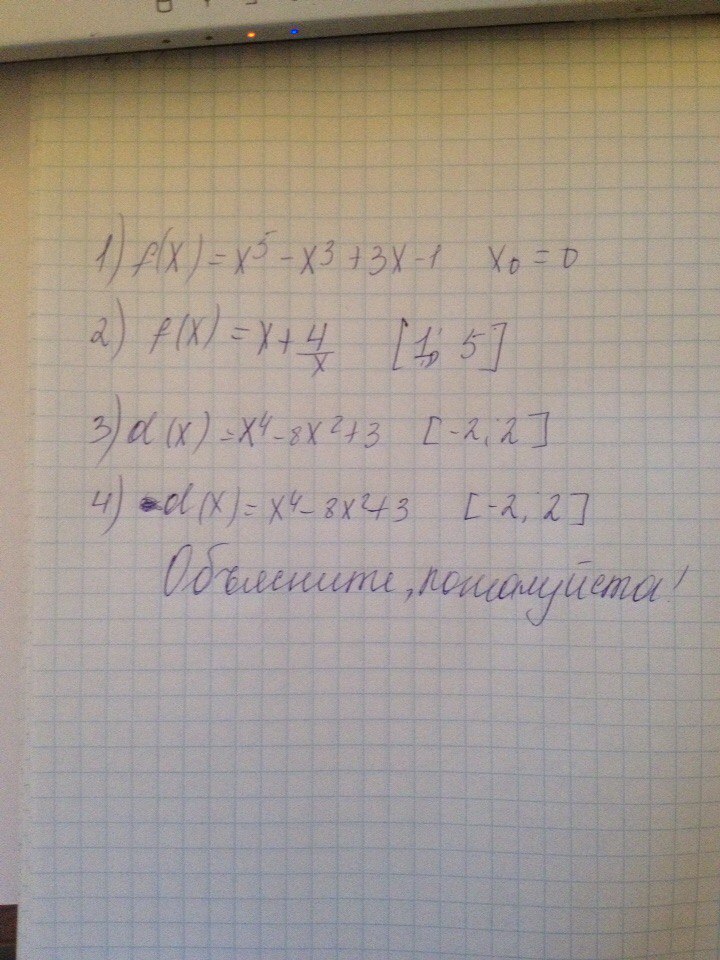 1) f(x) = x⁵ - x³ + 3x - 1 x₀ = 0
2) f(x) = x + 4/x [1; 5]
3) d(x) = x⁴ - 8x² + 3 [-2; 2]
4) d(x) = x⁴ - 8x² + 3 [-2; 2]
Объясните, пожалуйста!